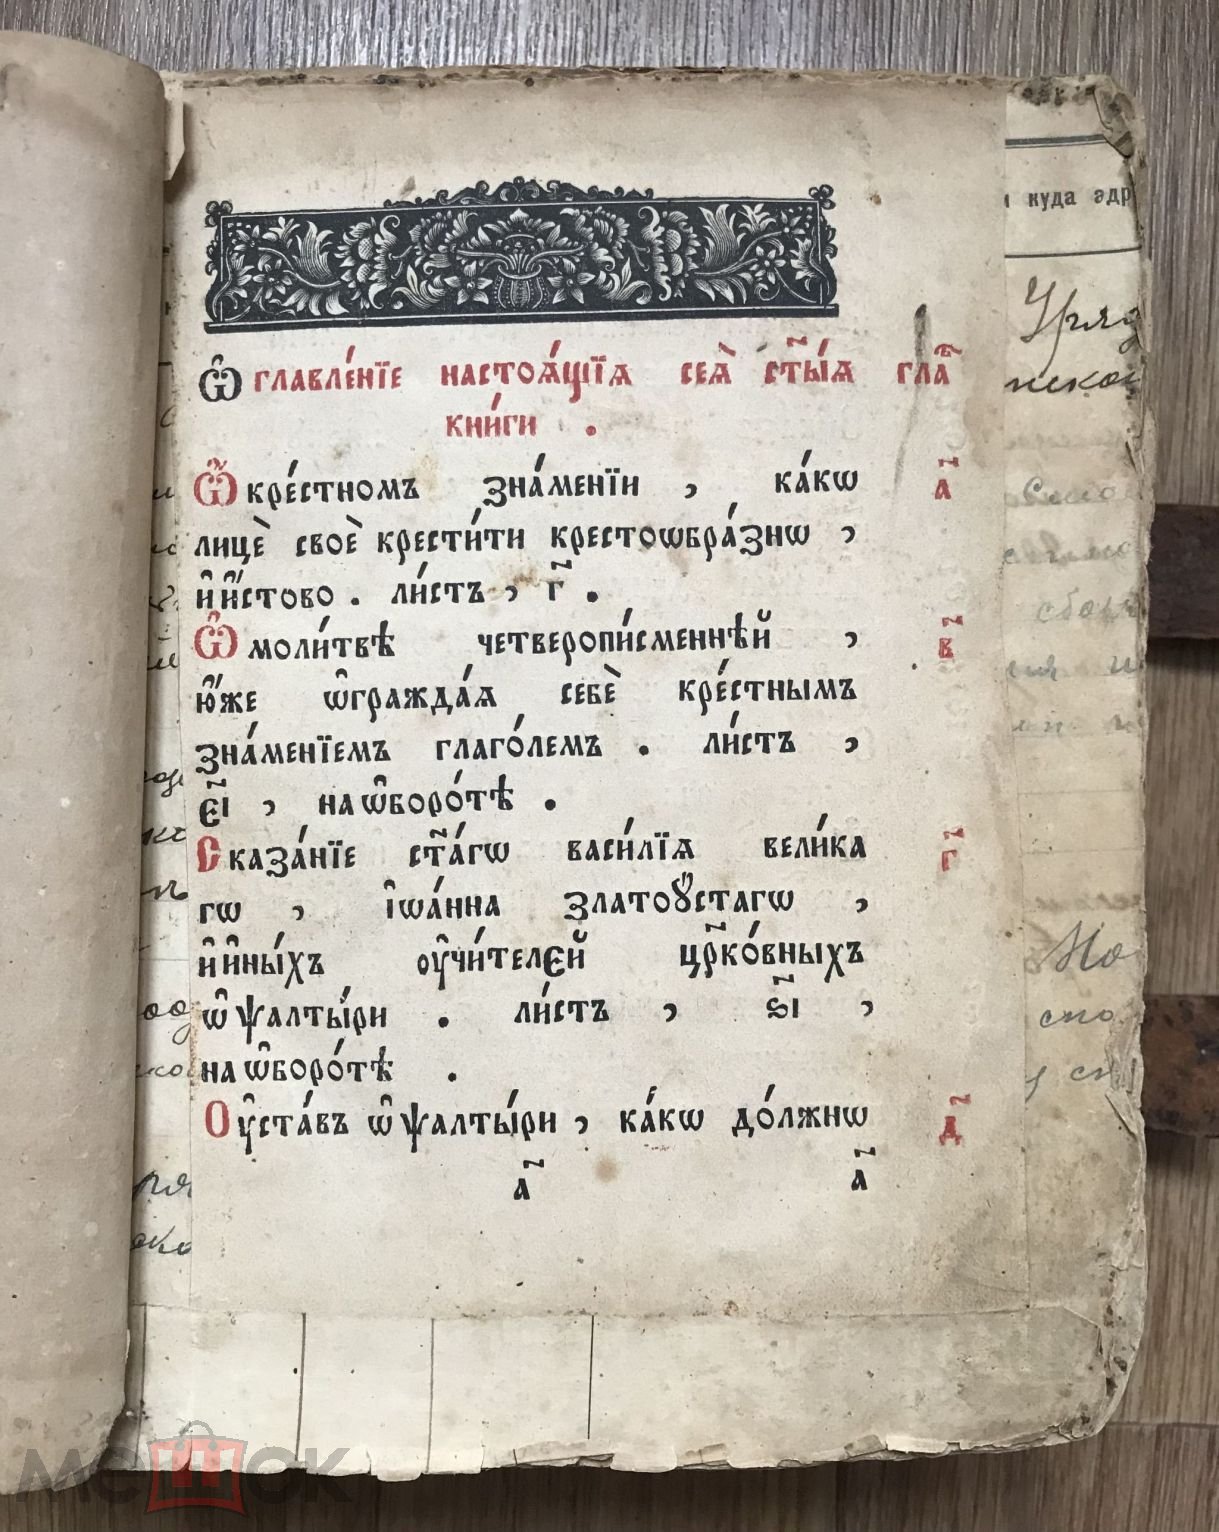 Ѡ҆главле́нїе настоѧ́щїѧ сеѧ̀ ст҃ы́ѧ гла̑в
кни́ги .
Ѽ кре́стномъ зна́менїи , ка́кѡ а҃
лицѐ своѐ крести́ти крестоѡбра́знѡ ,
и҆ и҆́стово . ли́стъ , г҃ .
Ѽ моли́твѣ четверопи́сменнѣй , в҃
ю҆́же ѡ҆гражда́ѧ себѐ кре́стнымъ
зна́менїемъ глаго́лемъ . ли́стъ ,
є҃і , на ѡ҆боро́тѣ .
Сказа́нїе ст҃а́гѡ васи́лїѧ вели́ка г҃
гѡ , і҆ѡа́нна златоꙋ́стагѡ ,
и҆ и҆ны́хъ ᲂу҆чи́телєй цр҃ко́вныхъ
ѡ҆ ѱалты́ри . ли́стъ , ѕ҃і ,
на ѡ҆боро́тѣ .
Оу҆ста́въ ѡ҆ ѱалты́ри , ка́кѡ до́лжнѡ д҃
а҃ а҃
куда адр
мешок